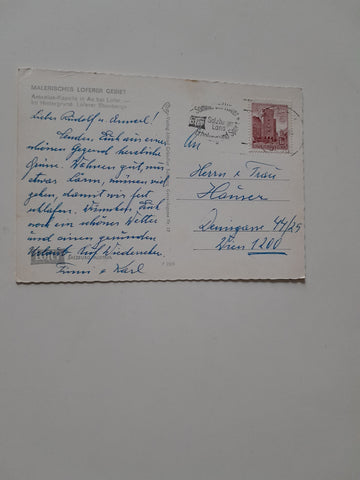 MALERISCHES LOFERER GEBIET
Antonius-Kapelle in Au bei Lofer
Im Hintergrund: Loferer Steinberge
Liebe Rudolf u. Annerl!
Senden Euch aus einer
schönen Gegend herzliche
Grüsse. Wohnen gut, nur
etwas Lärm, müssen viel
gehen, damit wir fest
schlafen. Wünschen Euch
noch ein schönes Wetter
und einen gesunden
Urlaub. Auf Wiedersehen
u. Karl
SALZBURG
Salzburger
Land
An
Herrn u. Frau
Häuser
44/25
Wien 1200